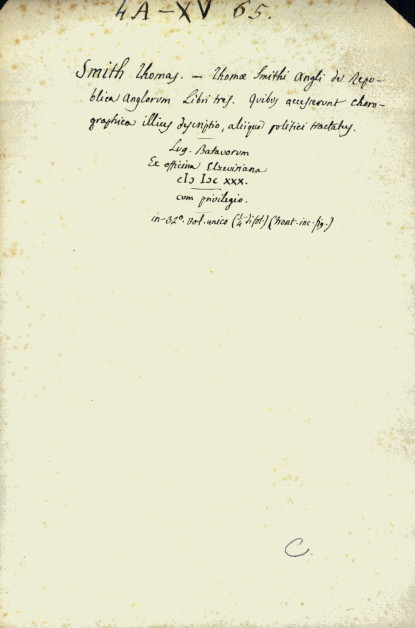 4A-XV 65.
Smith Thomas. — Thomæ Smithi Angli de Repu-
blica Anglorum Libri tres. Quibus accesserunt choro-
graphica illius descriptio, aliique politici tractatus.
Lug. Batavorum
Ex officina Elzeviriana
cIↄ Iↄc xxx.
cum privilegio.
in-32°. vol. unico (front. inc. fig.)
C.